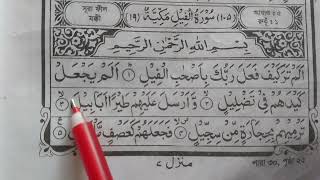 সূরা ফীল
মক্কী
(١٠٥) سُوْرَةُ الْفِيْلِ مَكِّيَّةٌ (١٩)
بِسْمِ اللّٰهِ الرَّحْمٰنِ الرَّحِيْمِ
اَلَمْ تَرَ كَيْفَ فَعَلَ رَبُّكَ بِاَصْحٰبِ الْفِيْلِ ۝١ اَلَمْ يَجْعَلْ
كَيْدَهُمْ فِيْ تَضْلِيْلٍ ۝٢ وَّاَرْسَلَ عَلَيْهِمْ طَيْرًا اَبَابِيْلَ ۝٣
تَرْمِيْهِمْ بِحِجَارَةٍ مِّنْ سِجِّيْلٍ ۝٤ فَجَعَلَهُمْ كَعَصْفٍ ۝٥
منزل ٧
পারা ৩০, পৃষ্ঠা ২২